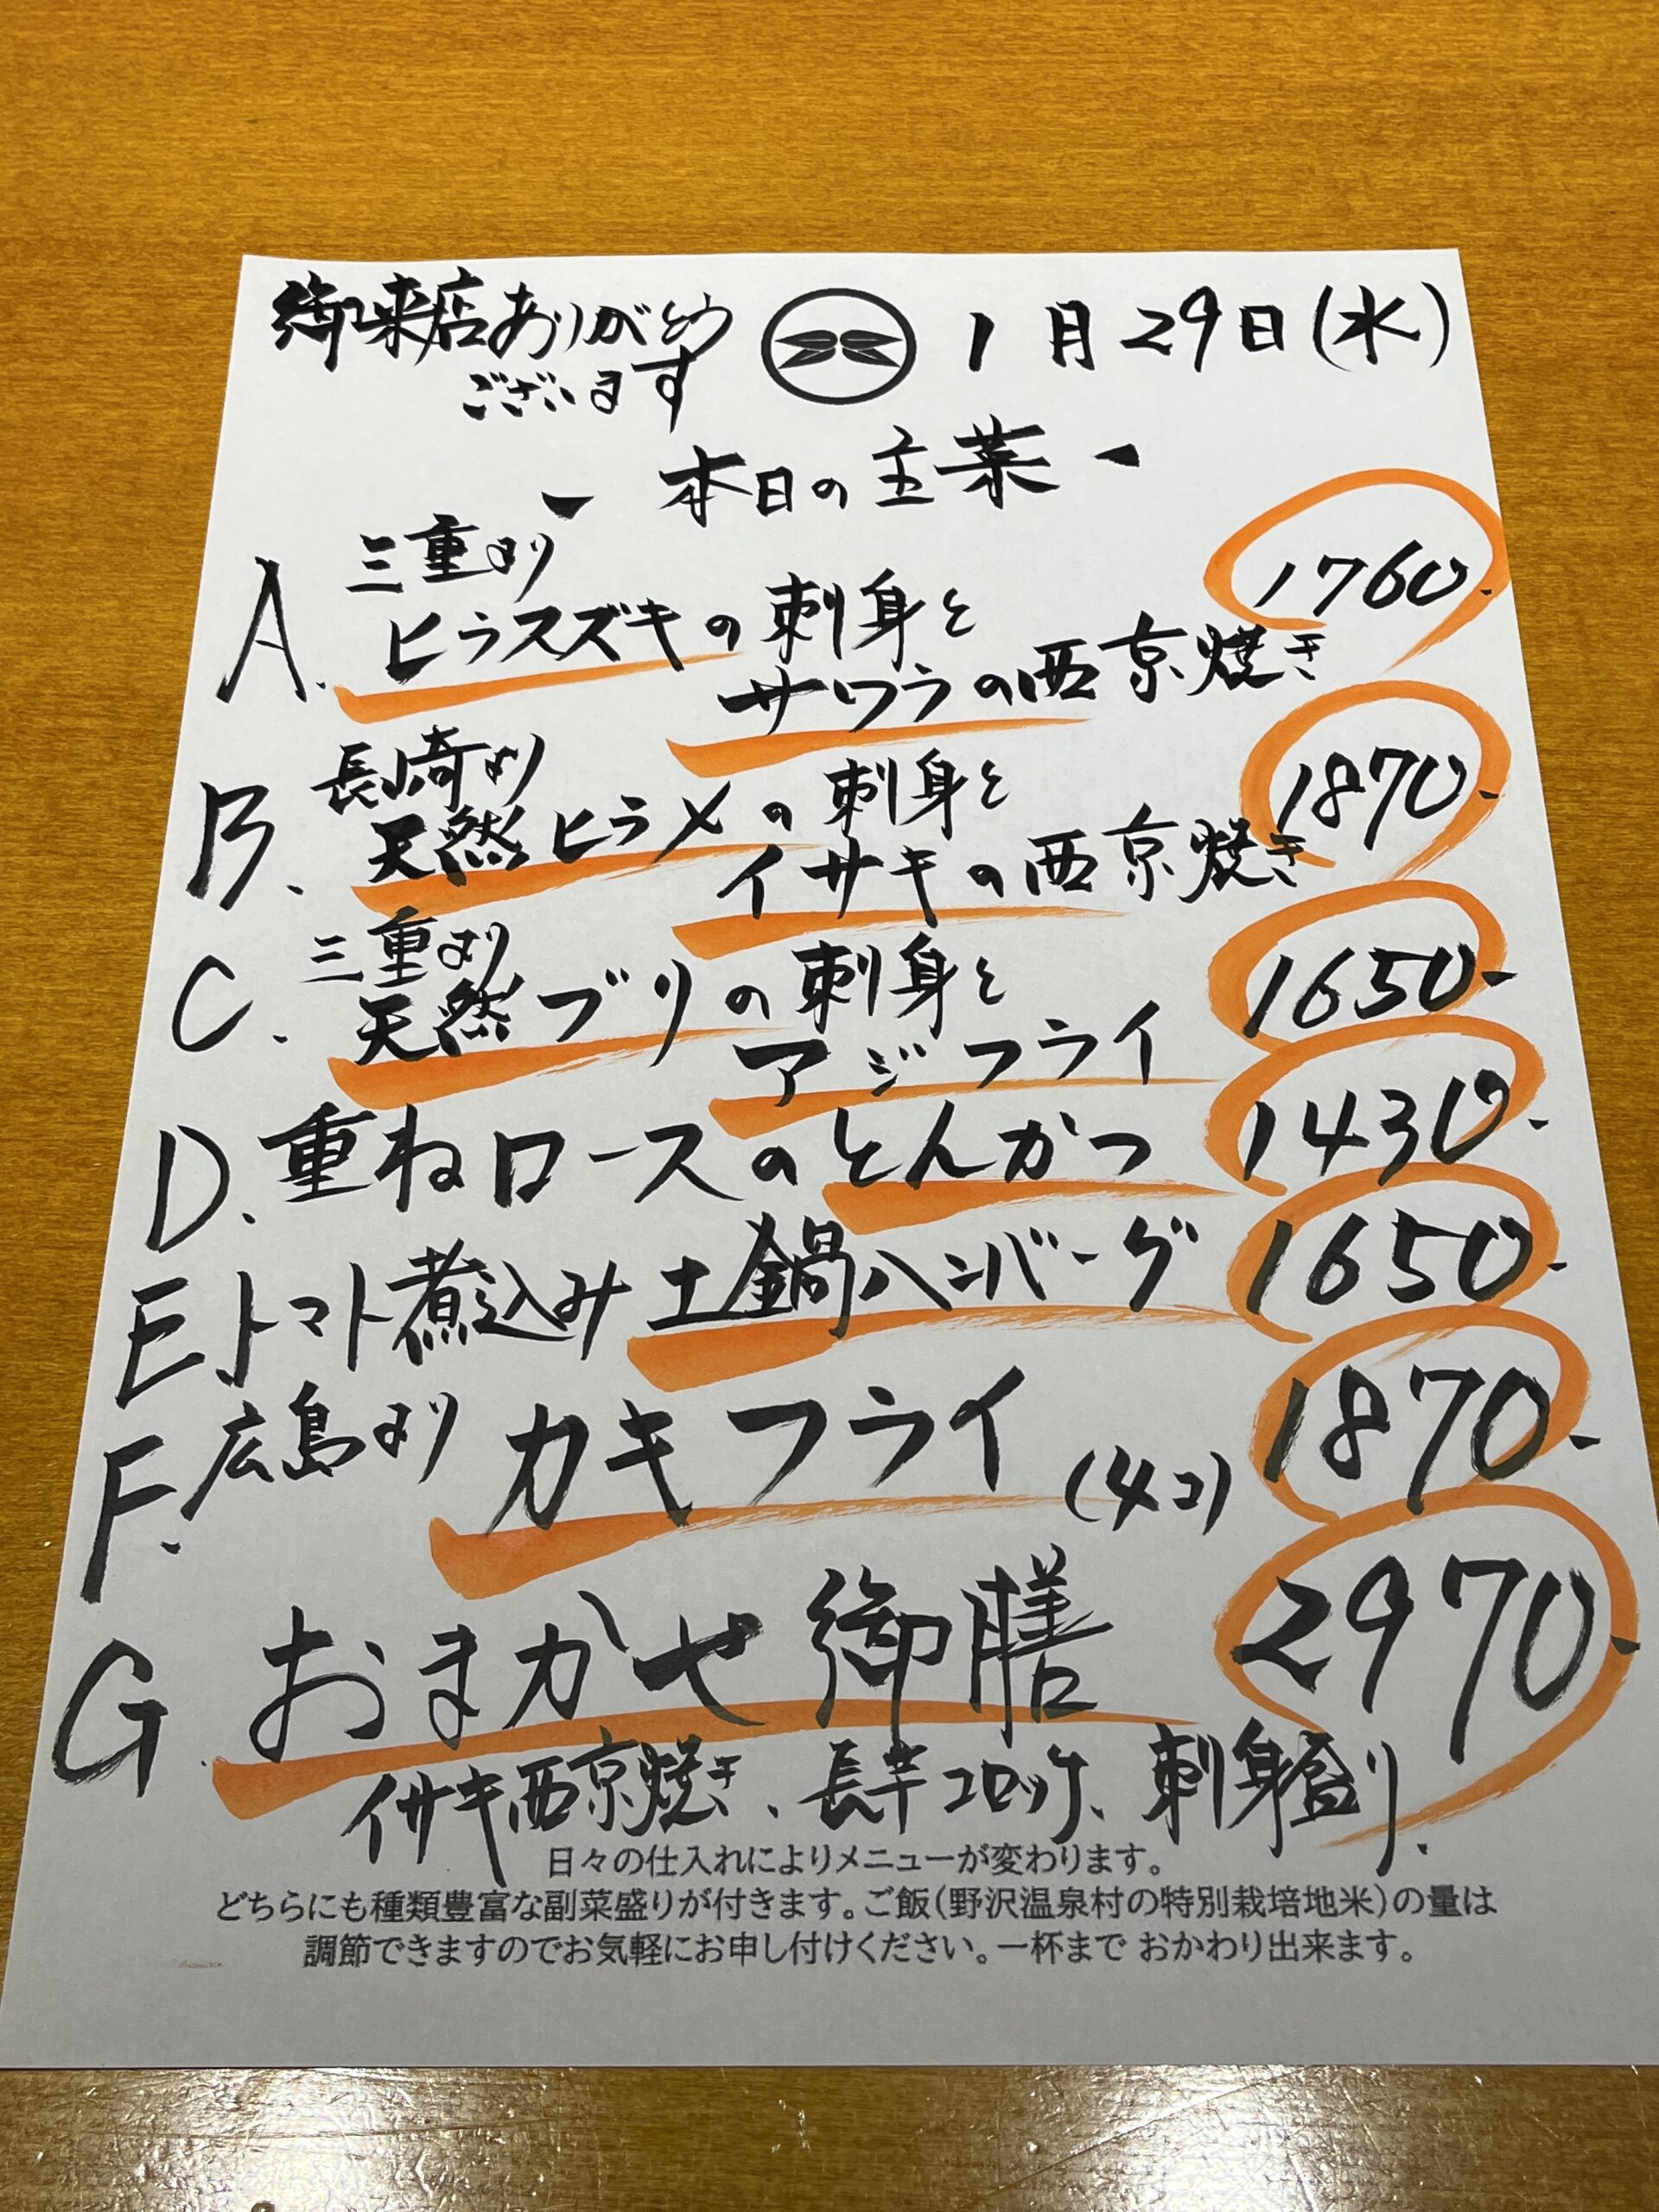 御来店ありがとう
ございます
1月29日(水)
- 本日の主菜 -
A. 三重より
ヒラスズキの刺身と
サワラの西京焼き
1760-
B. 長崎より
天然ヒラメの刺身と
イサキの西京焼き
1870-
C. 三重より
天然ブリの刺身と
アジフライ
1650-
D. 重ねロースのとんかつ 1430-
E トマト煮込み土鍋ハンバーグ 1650-
F. 広島より カキフライ (4コ) 1870-
G. おまかせ御膳 2970-
イサキ西京焼き、長芋コロッケ、刺身盛り.
日々の仕入れによりメニューが変わります。
どちらにも種類豊富な副菜盛りが付きます。ご飯(野沢温泉村の特別栽培地米)の量は
調節できますのでお気軽にお申し付けください。一杯まで おかわり出来ます。